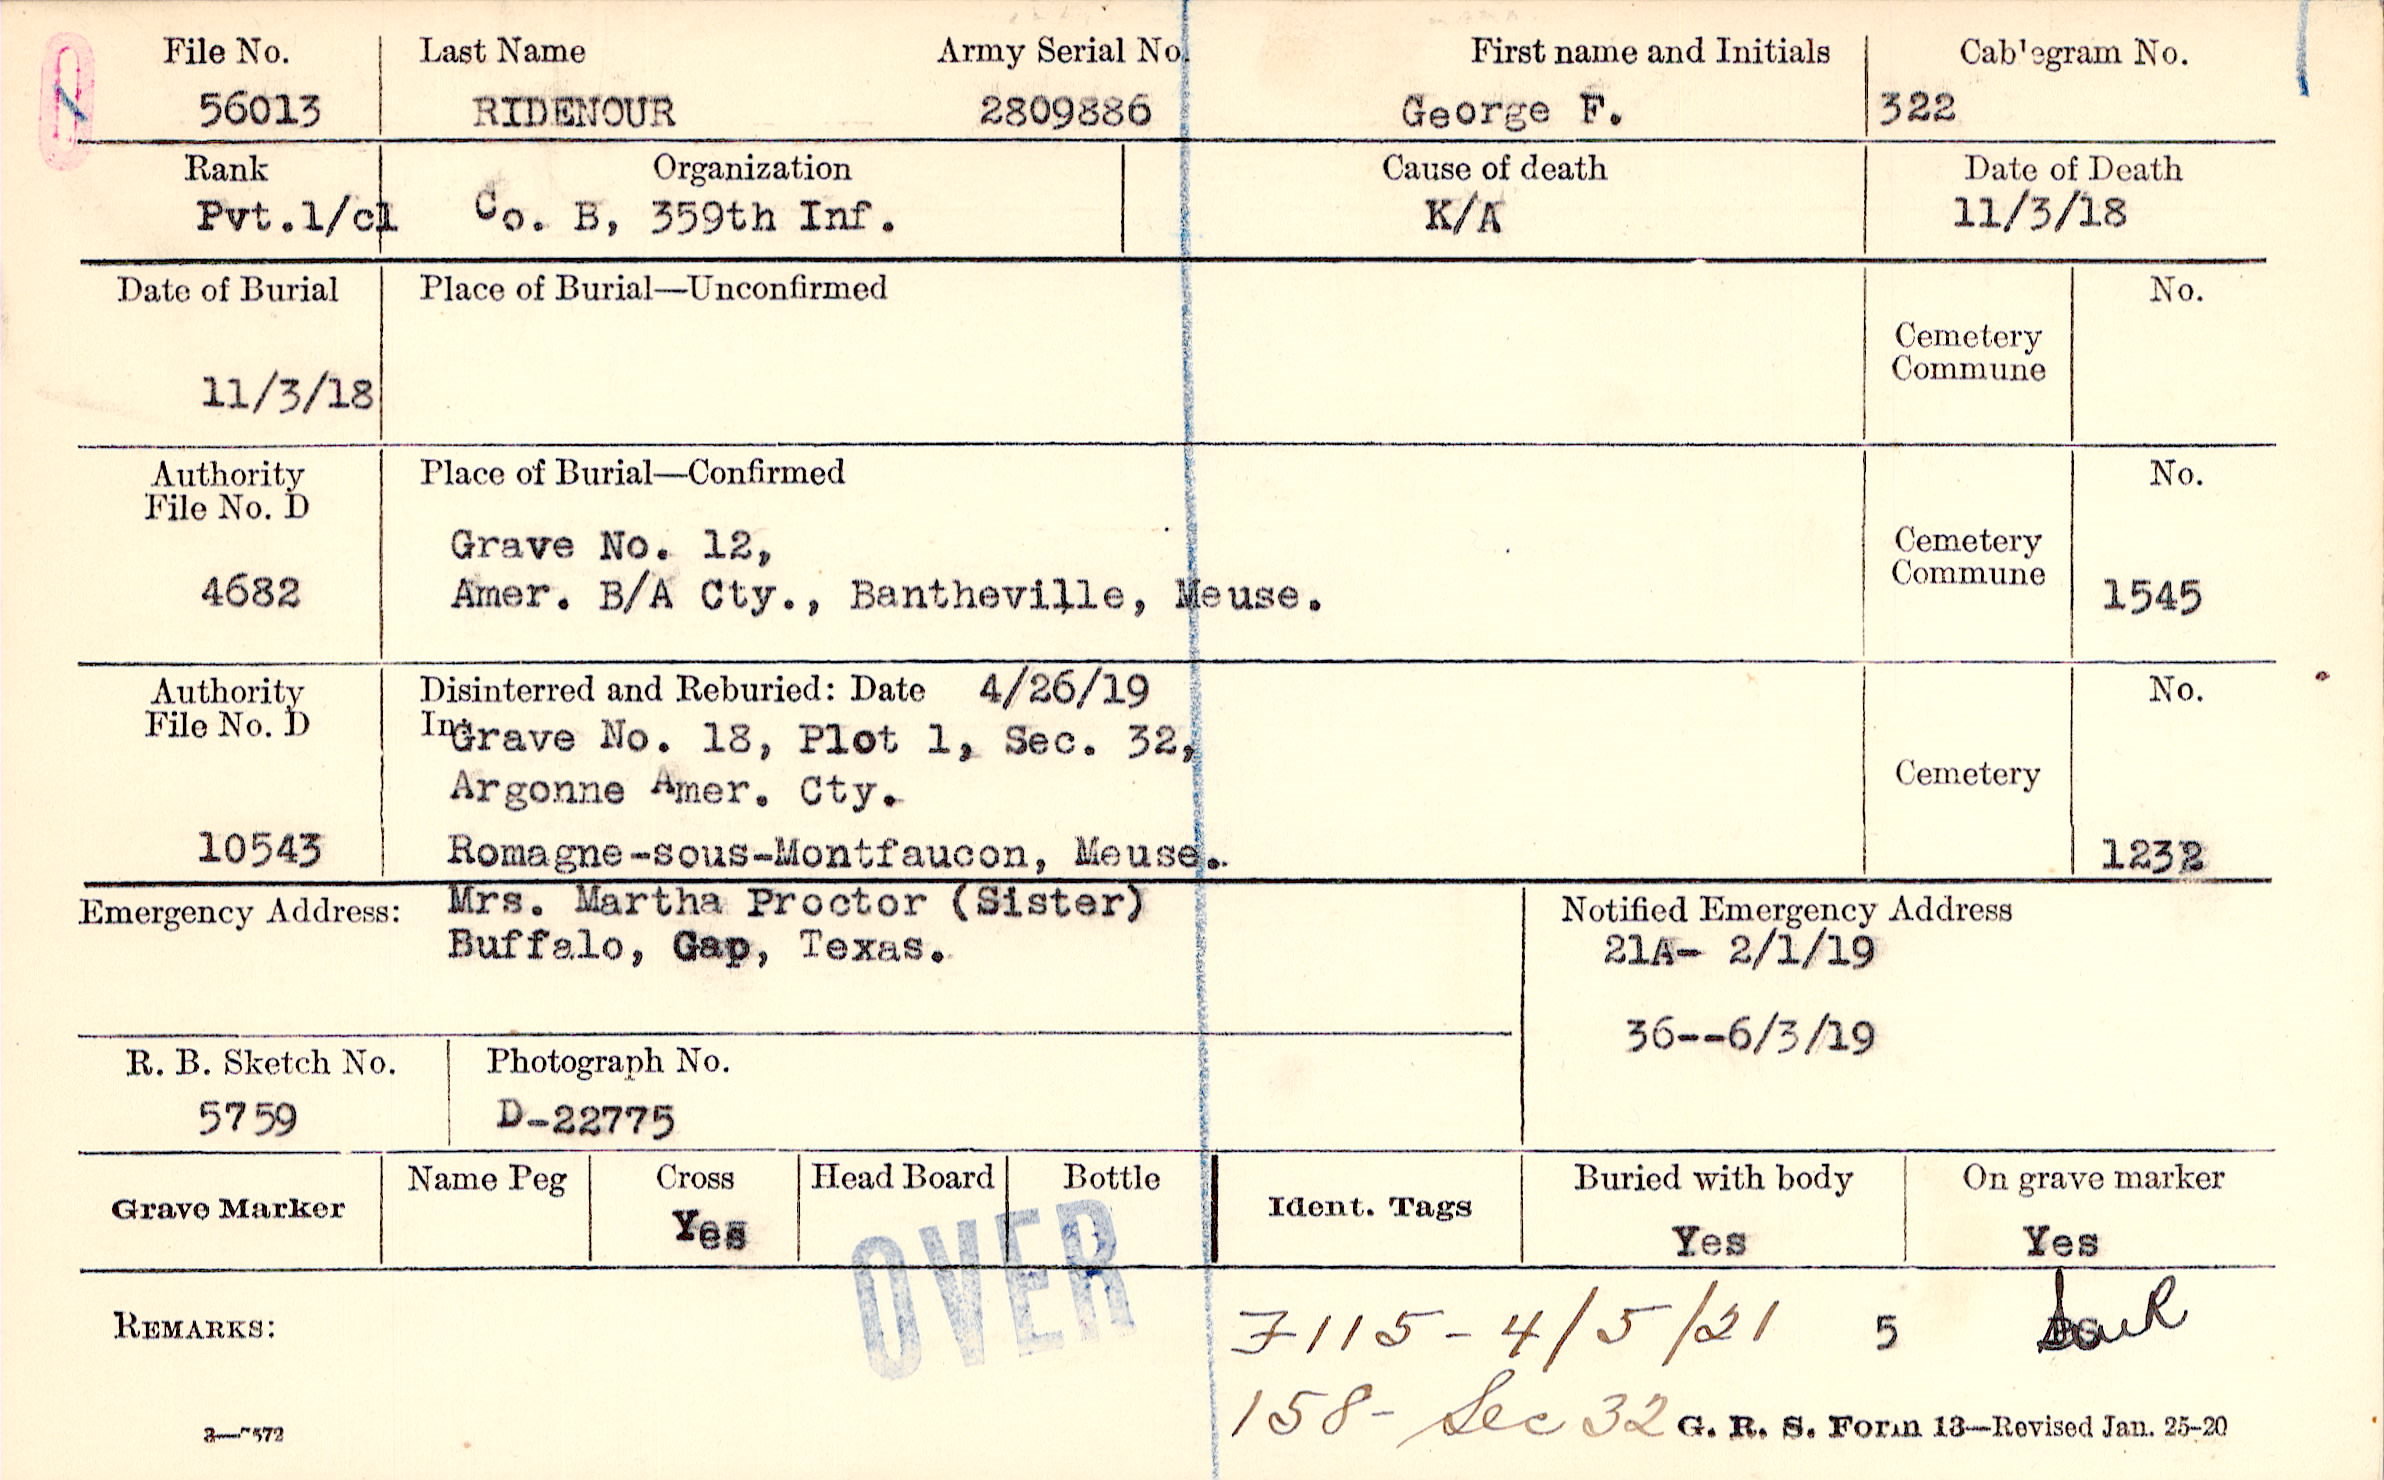 File No. Last Name Army Serial No. First name and Initials Cablegram No.
56013 RIDENOUR 2809886 George F. 322
Rank Organization Cause of death Date of Death
Pvt.1/cl Co. B, 359th Inf. K/A 11/3/18
Date of Burial Place of Burial—Unconfirmed No.
Cemetery
Commune
11/3/18
Authority Place of Burial—Confirmed No.
File No. D
Grave No. 12, Cemetery
Commune
4682 Amer. B/A Cty., Bantheville, Meuse. 1545
Authority Disinterred and Reburied: Date 4/26/19 No.
File No. D In
Grave No. 18, Plot 1, Sec. 32,
Argonne Amer. Cty. Cemetery
10543 Romagne-sous-Montfaucon, Meuse. 1232
Emergency Address: Mrs. Martha Proctor (Sister) Notified Emergency Address
Buffalo, Gap, Texas. 21A- 2/1/19
36--6/3/19
R. B. Sketch No. Photograph No.
5759 D-22775
Grave Marker Name Peg Cross Head Board Bottle Ident. Tags Buried with body On grave marker
Yes Yes Yes
OVER
REMARKS: 7115-4/5/21 5
158- Sec 32 G. R. S. Form 13—Revised Jan. 25-20